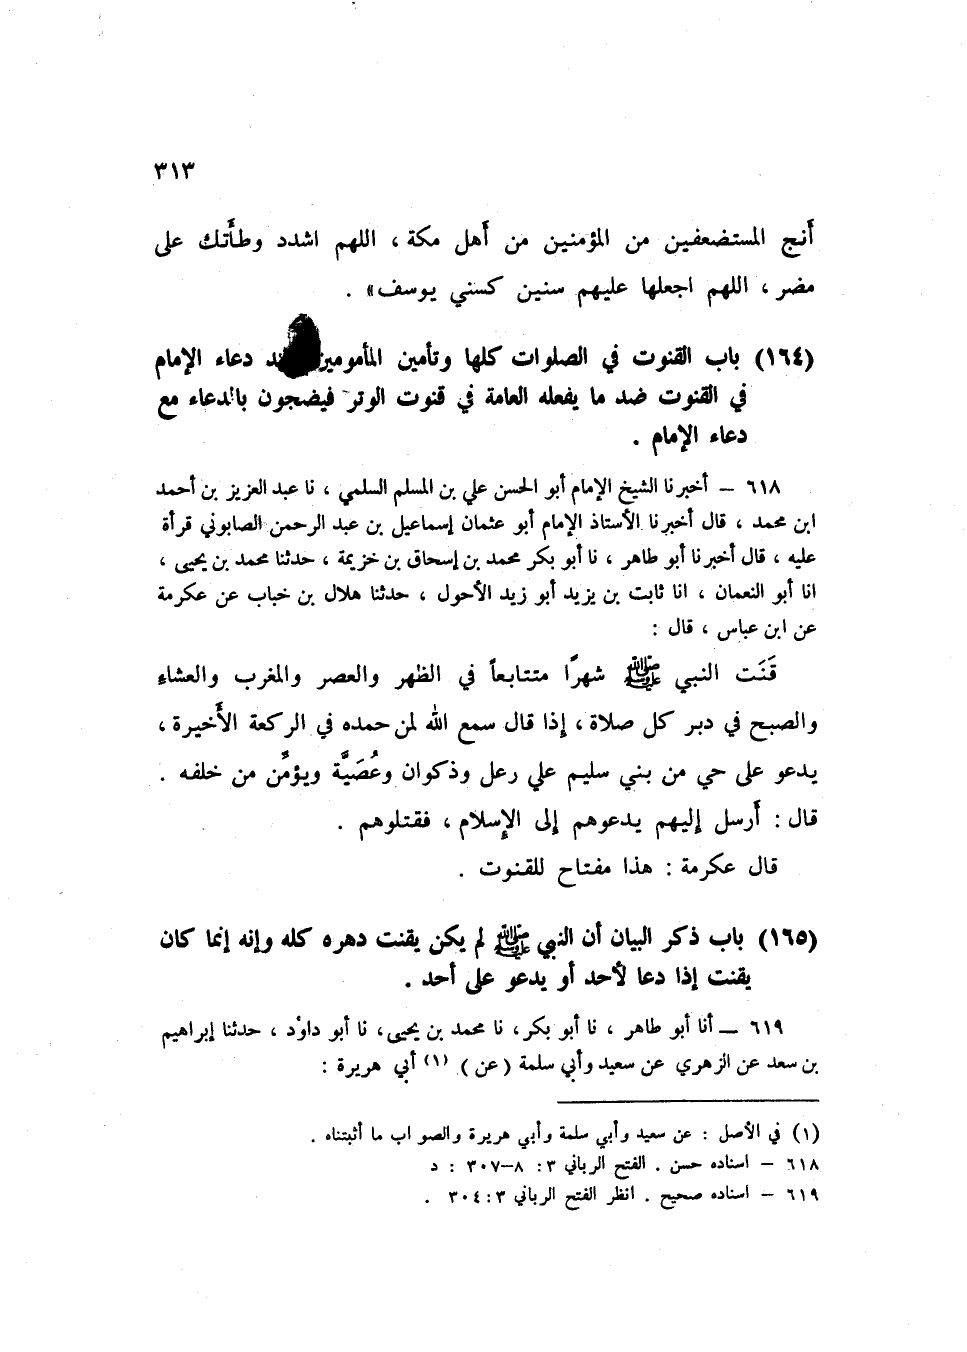 ٣١٣
أَنج المستضعفين من المؤمنين من أَهل مكة ، اللهم اشدد وطأَتك على
مضر ، اللهم اجعلها عليهم سنين كسني يوسف» .
(١٦٤) باب القنوت في الصلوات كلها وتأمين المأمومين دعاء الإمام
في القنوت ضد ما يفعله العامة في قنوت الوتر فيضجون بالدعاء مع
دعاء الإمام .
٦١٨ – أخبرنا الشيخ الإمام أبو الحسن علي بن المسلم السلمي ، نا عبد العزيز بن أحمد
ابن محمد ، قال أخبرنا الأستاذ الإمام أبو عثمان إسماعيل بن عبد الرحمن الصابوني قرأة
عليه ، قال أخبرنا أبو طاهر ، نا أبو بكر محمد بن إسحاق بن خزيمة ، حدثنا محمد بن يحيى ،
انا أبو النعمان ، انا ثابت بن يزيد أبو زيد الأحول ، حدثنا هلال بن خباب عن عكرمة
عن ابن عباس ، قال :
قَنَت النبي ﷺ شهرًا متتابعاً في الظهر والعصر والمغرب والعشاء
والصبح في دبر كل صلاة ، إذا قال سمع الله لمن حمده في الركعة الأَخيرة ،
يدعو على حي من بني سليم علي رعل وذكوان وعُصَيَّة ويؤمِّن من خلفه .
قال : أَرسل إليهم يدعوهم إلى الإِسلام ، فقتلوهم .
قال عكرمة : هذا مفتاح للقنوت .
(١٦٥) باب ذكر البيان أن النبي ﷺ لم يكن يقنت دهره كله وإنه إنما كان
يقنت إذا دعا لأحد أو يدعو على أحد .
٦١٩ – أنا أبو طاهر ، نا أبو بكر ، نا محمد بن يحيى ، نا أبو داوْد ، حدثنا إبراهيم
بن سعد عن الزهري عن سعيد وأبي سلمة ( عن ) (١) أبي هريرة :
(١) في الأصل : عن سعيد وأبي سلمة وأبي هريرة والصواب ما أثبتناه .
٦١٨ – اسناده حسن . الفتح الرباني ٣ : ٨–٣٠٧ : د
٦١٩ – اسناده صحيح . انظر الفتح الرباني ٣ : ٣٠٤ .